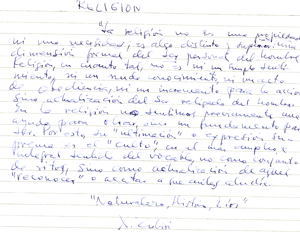 RELIGION
"La religión no es una propiedad
ni una necesidad; es algo distinto y superior: una
dimensión formal del ser personal del hombre.
Religión, en cuanto tal, no es ni un simple senti-
miento, ni un nudo conocimiento, ni un acto
de obediencia, ni un incremento para la acción
sino actualización del ser religado del hombre.
En la religión no sentimos previamente una
ayuda para obrar, sino un fundamento para
ser. Por esto, su "ultimación" o expresión su-
prema es el "culto" en el más amplio e
integral sentido del vocablo, no como conjunto
de ritos, sino como actualización de aquel
"reconocer" o acatar a que antes aludía.
"Naturaleza, Historia, Dios"
X. Zubiri